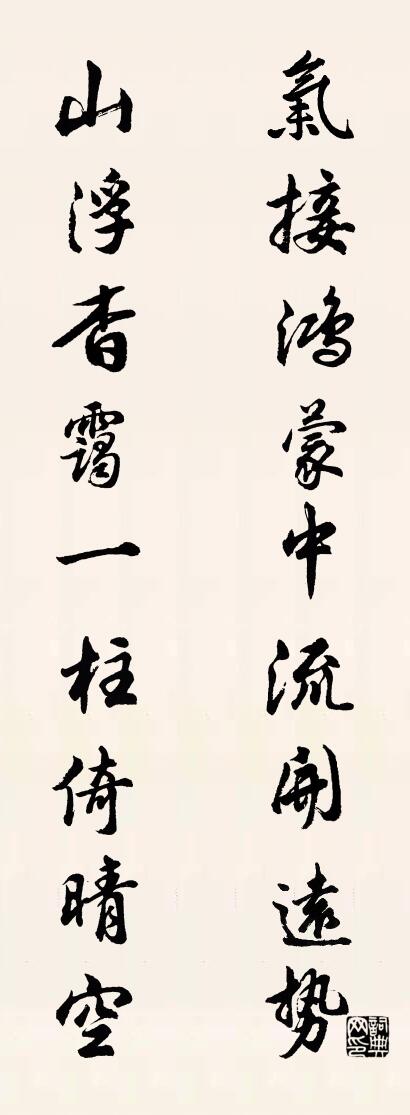 氣接鴻蒙中流開遠勢
山浮杳靄一柱倚晴空
詞典網印